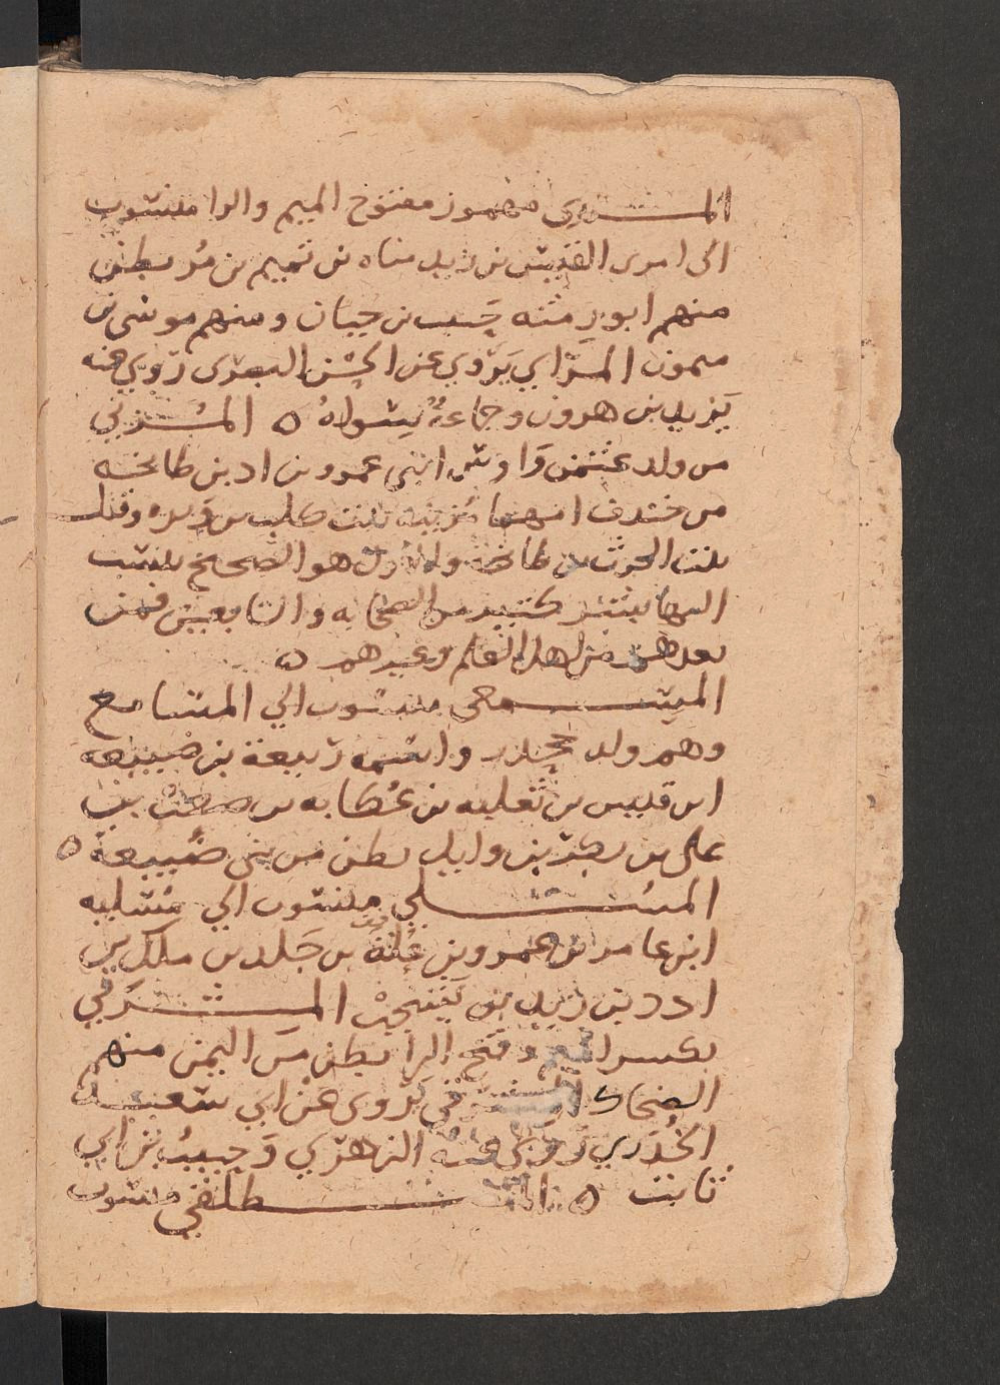 المـــرءي مهموز مفتوح الميم والرا منسوب
الى امرى القيس بن زيد مناه بن تميم بن مُر بطن
منهم ابو رِمثه حَبيب بن حيان ومنهم موسى بن
ميمون المرَاي يَروي عن الحسَن البصرى رَوي عنه
يَزيد بن هرون وجماعةٌ سِواهُ ه المُـــزني
من ولد عثمن وَاوس ابني عمرو بن اد بن طابخه
من خندف امهما مُزينه بنت كلب بن وَبره وقيل
بنت الحرث بن طابخة والاول هو الصحيح ينسب
اليها بشر كثير من الصحابه والتابعين فمن
بعدهم من اهل العلم وغيرهم ه
المِســـمعى منسوب الي المسامع
وهم ولد جحدر واسمه رَبيعة بن ضبيعه
ابن قيس بن ثعلبه بن عُكابه بن صعْب بن
على بن بكر بن وايل بطن من بنى ضُبيعة ه
المُســـلي منسوب الي مُسليه
ابن عامر بن عمرو بن عُلَةَ بن جَلد بن ملك بن
ادد بن زيد بن يَشجبْ المِـــشرَقي
بكسر الميم وفتح الرا بطن من اليمن منهم
الضحاك المشرقي يَروى عن ابي سَعيد
الخُدري رَوَى عنه الزهرَي وَحبيبُ بن ابي
ثابت ه المُصـــطلقي منسوب